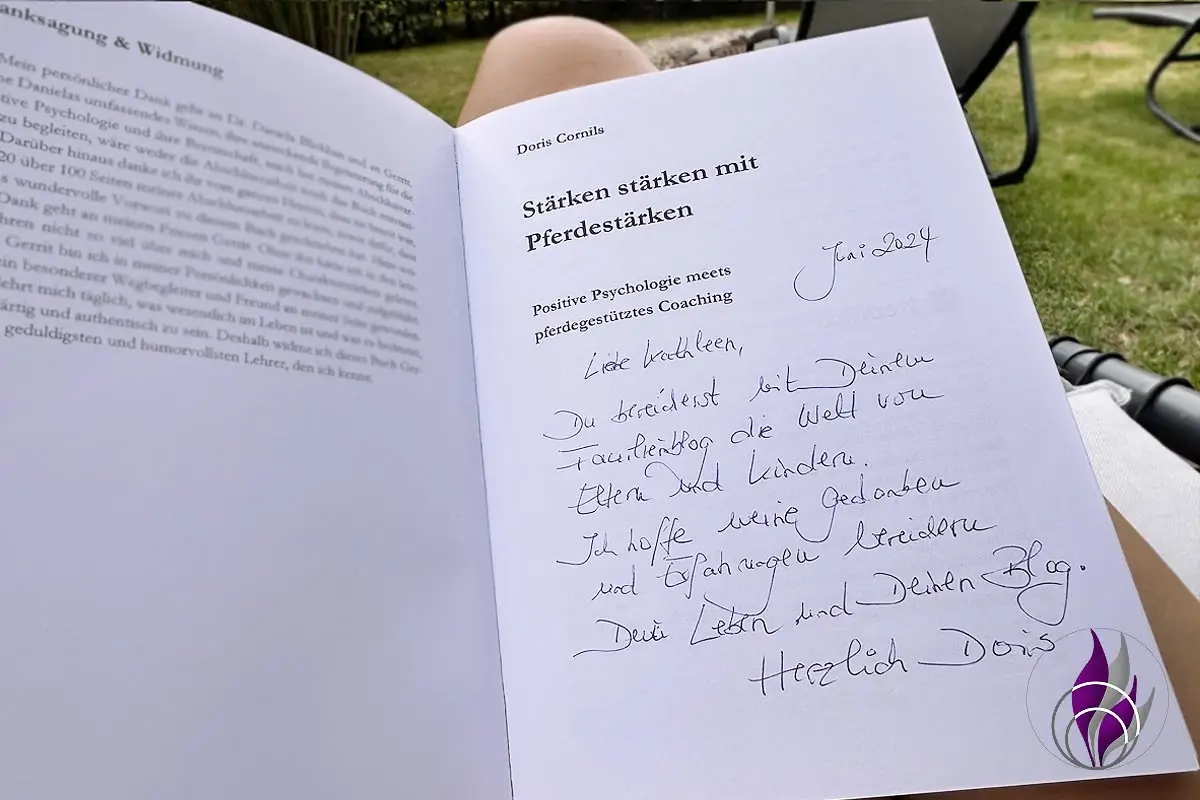 anksagung & Widmung
Mein persönlicher Dank geht an Dr. Daniela Blickhan und an Gernt.
be Danielas umfassendes Wissen, ihre ansteckende Begeisterung für die
tive Psychologie und ihre Bereitschaft, mich bei meiner
zu begleiten, wäre weder die Abschlussarbeit noch das Buch entstan-
Darüber hinaus danke ich ihr vom ganzen Herzen, dass sie bereit war,
20 über 100 Seiten meiner Abschlussarbeit zu lesen, sowie dafür, dass
s wundervolle Vorwort zu diesem Buch geschrieben hat. Mein
Dank geht an meinen Friesen Gernt. Ohne ihn hätte ich in den letz-
hren nicht so viel über mich und meine Charakterstärken gelernt.
Gernt bin ich in meiner Persönlichkeit gewachsen und aufgeblüht.
ein besonderer Wegbegleiter und Freund an meiner Seite geworden.
lehrt mich täglich, was wesentlich im Leben ist und was es bedeutet,
ärtig und authentisch zu sein. Deshalb widme ich dieses Buch Ger-
geduldigsten und humorvollsten Lehrer, den ich kenne.
Doris Cornils
Stärken stärken mit
Pferdestärken
Juni 2024
Positive Psychologie meets
pferdegestütztes Coaching
Liebe Kathleen,
Du bereicherst mit Deinem
Familienblog die Welt von
Eltern und Kindern.
Ich hoffe meine Gedanken
und Erfahrungen bereichern
Dein Leben und Deinen Blog.
Herzlich Doris